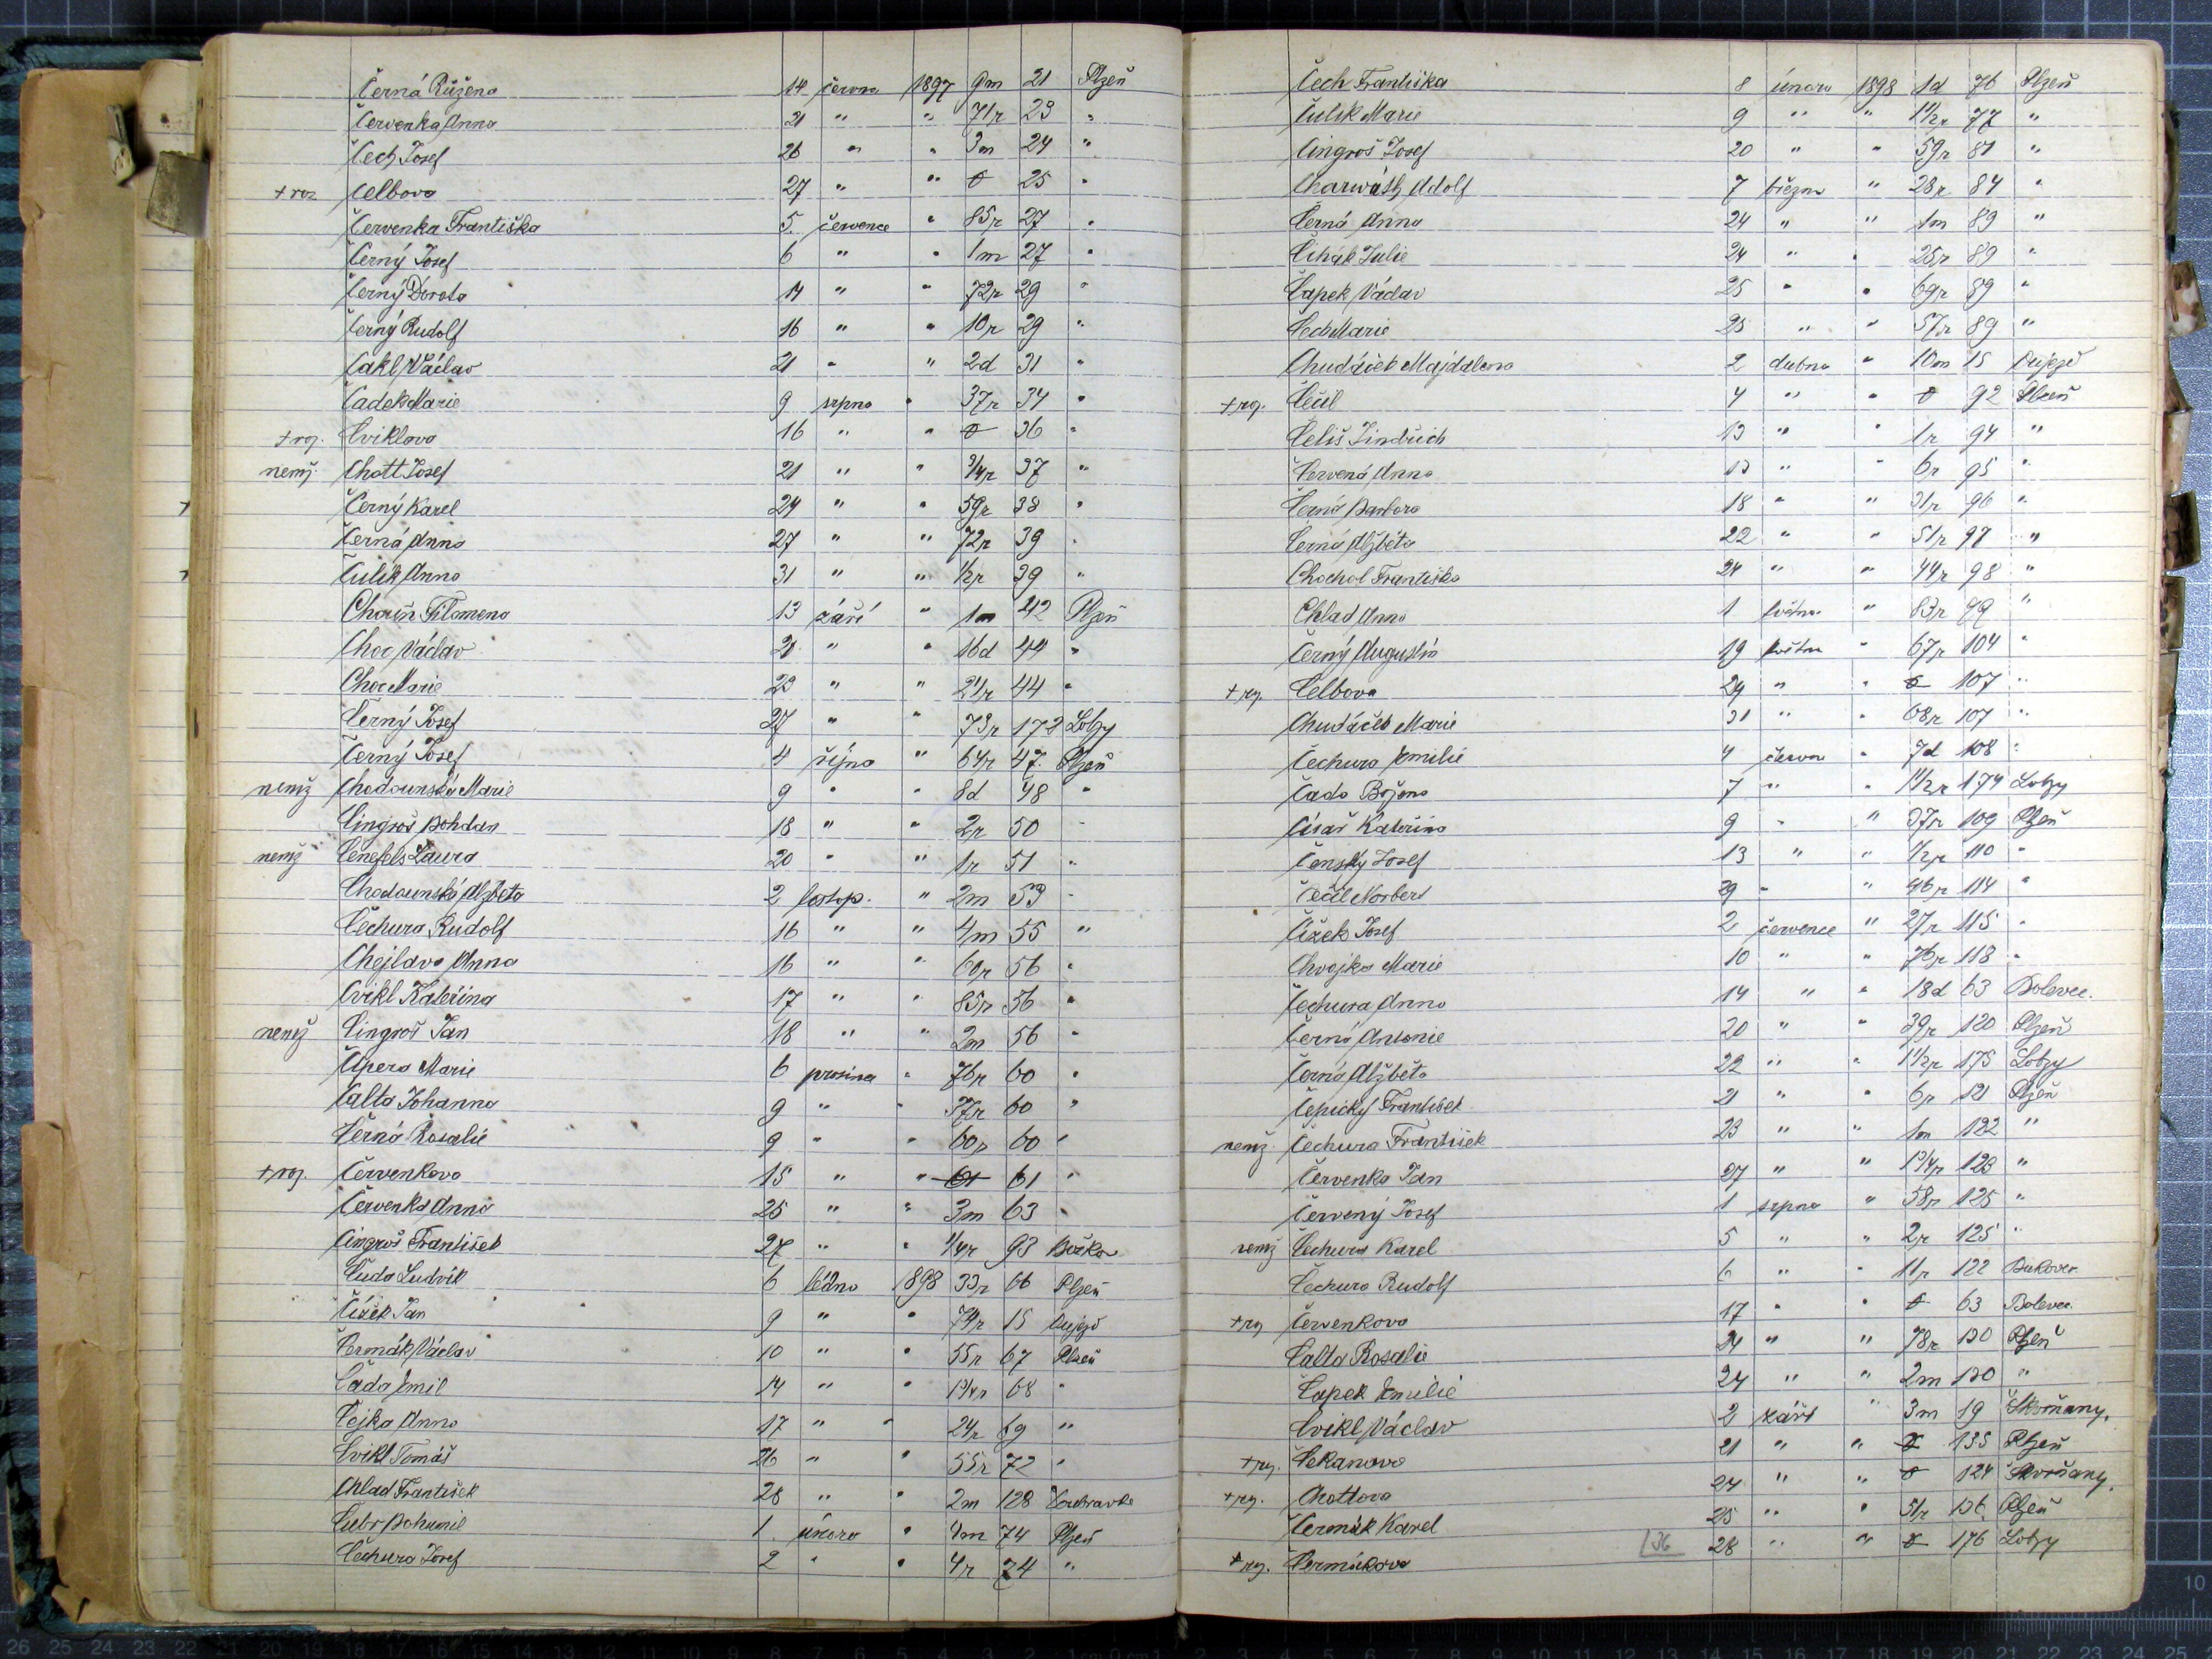 Černá Růžena 14 června 1897 9m 21 Plzeň
Červenka Anna 21 " " 71r 23 "
Čech Josef 26 " " 3m 24 "
+ roz Celbova 27 " " 0 25 "
Červenka Františka 5. července " 85r 27 "
Černý Josef 6 " " 1m 27 "
Černý Dorota 14 " " 72r 29 "
Černý Rudolf 16 " " 10r 29 "
Cakl Václav 21 " " 2d 31 "
Čadek Marie 9 srpna " 37r 34 "
+ roz. Cviklova 16 " " 0 36 "
nemž. Chott Josef 21 " " 3/4r 37 "
Černý Karel 24 " " 59r 38 "
Černá Anna 27 " " 72r 39 "
Čulík Anna 31 " " 1/2r 39 "
Filomena 13 září " 1m 42 Plzeň
Choc Václav 21 " " 16d 44 "
Choc Marie 23 " " 21r 44 "
Černý Josef 27 " " 73r 172 Lobzy
Černý Josef 4 října " 64r 47. Plzeň
nemž Chodounská Marie 9 " " 8d 48 "
Cingroš Bohdan 18 " " 2r 50 "
nemž Cenefels Laura 20 " " 1r 51 "
Chodounská Alžběta 2 listop. " 2m 53 "
Čechura Rudolf 16 " " 4m 55 "
Chejlava Anna 16 " " 60r 56 "
Cvikl Kateřina 17 " " 85r 56 "
nemž Cingroš Jan 18 " " 2m 56 "
Čipera Marie 6 prosince " 76r 60 "
Calta Johanna 9 " " 37r 60 "
Černá Rosalie 9 " " 60r 60 "
+ roz. Červenkova 15 " " 61 61 "
Červenka Anna 25 " " 3m 63 "
Cingroš František 27 " " 1/4r 93 Božkov
Čuda Ludvík 6 ledna 1898 33r 66 Plzeň
Čížek Jan 9 " " 74r 15 Oujezd
Čermák Václav 10 " " 55r 67 Plzeň
Čada Emil 14 " " 1 3/4r 68 "
Čejka Anna 17 " " 24r 69 "
Cvikl Tomáš 26 " " 55r 72 "
Chlad František 28 " " 2m 128 Doubravka
Bohumil 1. února " 4m 74 Plzeň
Čechura Josef 2 " " 4r 74 "
Čech Františka 8 února 1898 1d 76 Plzeň
Čulík Marie 9 " " 1 1/2r 77 "
Cingroš Josef 20 " " 59r 81 "
Adolf 7 března " 28r 84 "
Černá Anna 24 " " 1m 89 "
Čihák Julie 24 " " 25r 89 "
Čapek Václav 25 " " 69r 89 "
Čech Marie 25 " " 57r 89 "
Chudáček Majdalena 2 dubna " 10m 15 Oujezd
+ roz. Čečil 4 " " 0 92 Plzeň
Čeliš Jindřich 13 " " 1r 94 "
Červená Anna 13 " " 6r 95 "
Černá Barbora 18 " " 31r 96 "
Černá Alžběta 22 " " 51r 97 "
Chochol Františka 24 " " 44r 98 "
Chlad Anna 1 května " 83r 99 "
Černý Augustin 19 května " 67r 104 "
+ roz. Celbova 24 " " 0 107 "
Chudáček Marie 31 " " 68r 107 "
Čechura Emilie 4 června " 7d 108 "
Čada Božena 7 " " 1 1/2r 174 Lobzy
Císař Kateřina 9 " " 37r 109 Plzeň
Čenský Josef 13 " " 1/2r 110 "
Čečil Norbert 29 " " 46r 114 "
Čížek Josef 2 července " 27r 115 "
Chvojka Marie 10 " " 76r 118 "
Čechura Anna 14 " " 18d 63 Bolevec.
Černá Antonie 20 " " 39r 120 Plzeň
Černá Alžběta 22 " " 1 1/2r 175 Lobzy
Čepický František 21 " " 6r 121 Plzeň
nemž. Čechura František 23 " " 1m 122 "
Červenka Jan 27 " " 1 3/4r 123 "
Červený Josef 1 srpna " 58r 125 "
nemž Čechura Karel 5 " " 2r 125 "
Čechura Rudolf 6 " " 11r 122 Bukovec
+ roz Červenkova 17 " " 0 63 Bolevec.
Calta Rosalie 24 " " 78r 130 Plzeň
Čapek Emilie 24 " " 2m 130 "
Cvikl Václav 2 září " 3m 19 Skvrňany.
+ roz. Čekanova 21 " " 0 135 Plzeň
+ roz. Chottova 24 " " 0 124 Skvrňany.
Čermák Karel 25 " " 51r 136 Plzeň
+ roz. Čermákova 136 28 " " 0 176 Lobzy